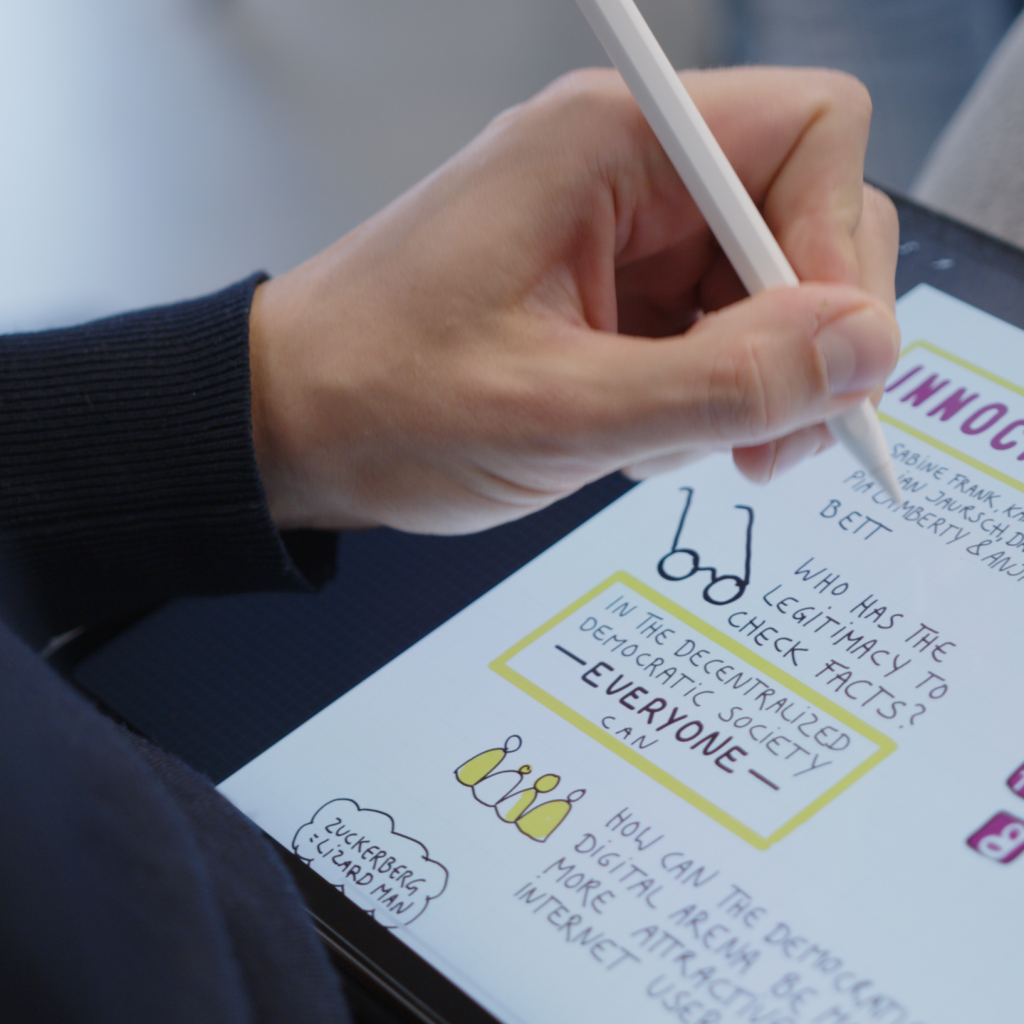 INNOC
SABINE FRANK, KA
JAURSCH, DA
PIA LAMBERTY & ANJ
BETT
WHO HAS THE
LEGITIMACY TO
CHECK FACTS?
IN THE DECENTRALIZED
DEMOCRATIC SOCIETY
—EVERYONE—
CAN
HOW CAN THE DEMOCRATI
DIGITAL ARENA BE M
MORE ATTRACTIVE
INTERNET USER
ZUCKERBERG
=LIZARD MAN